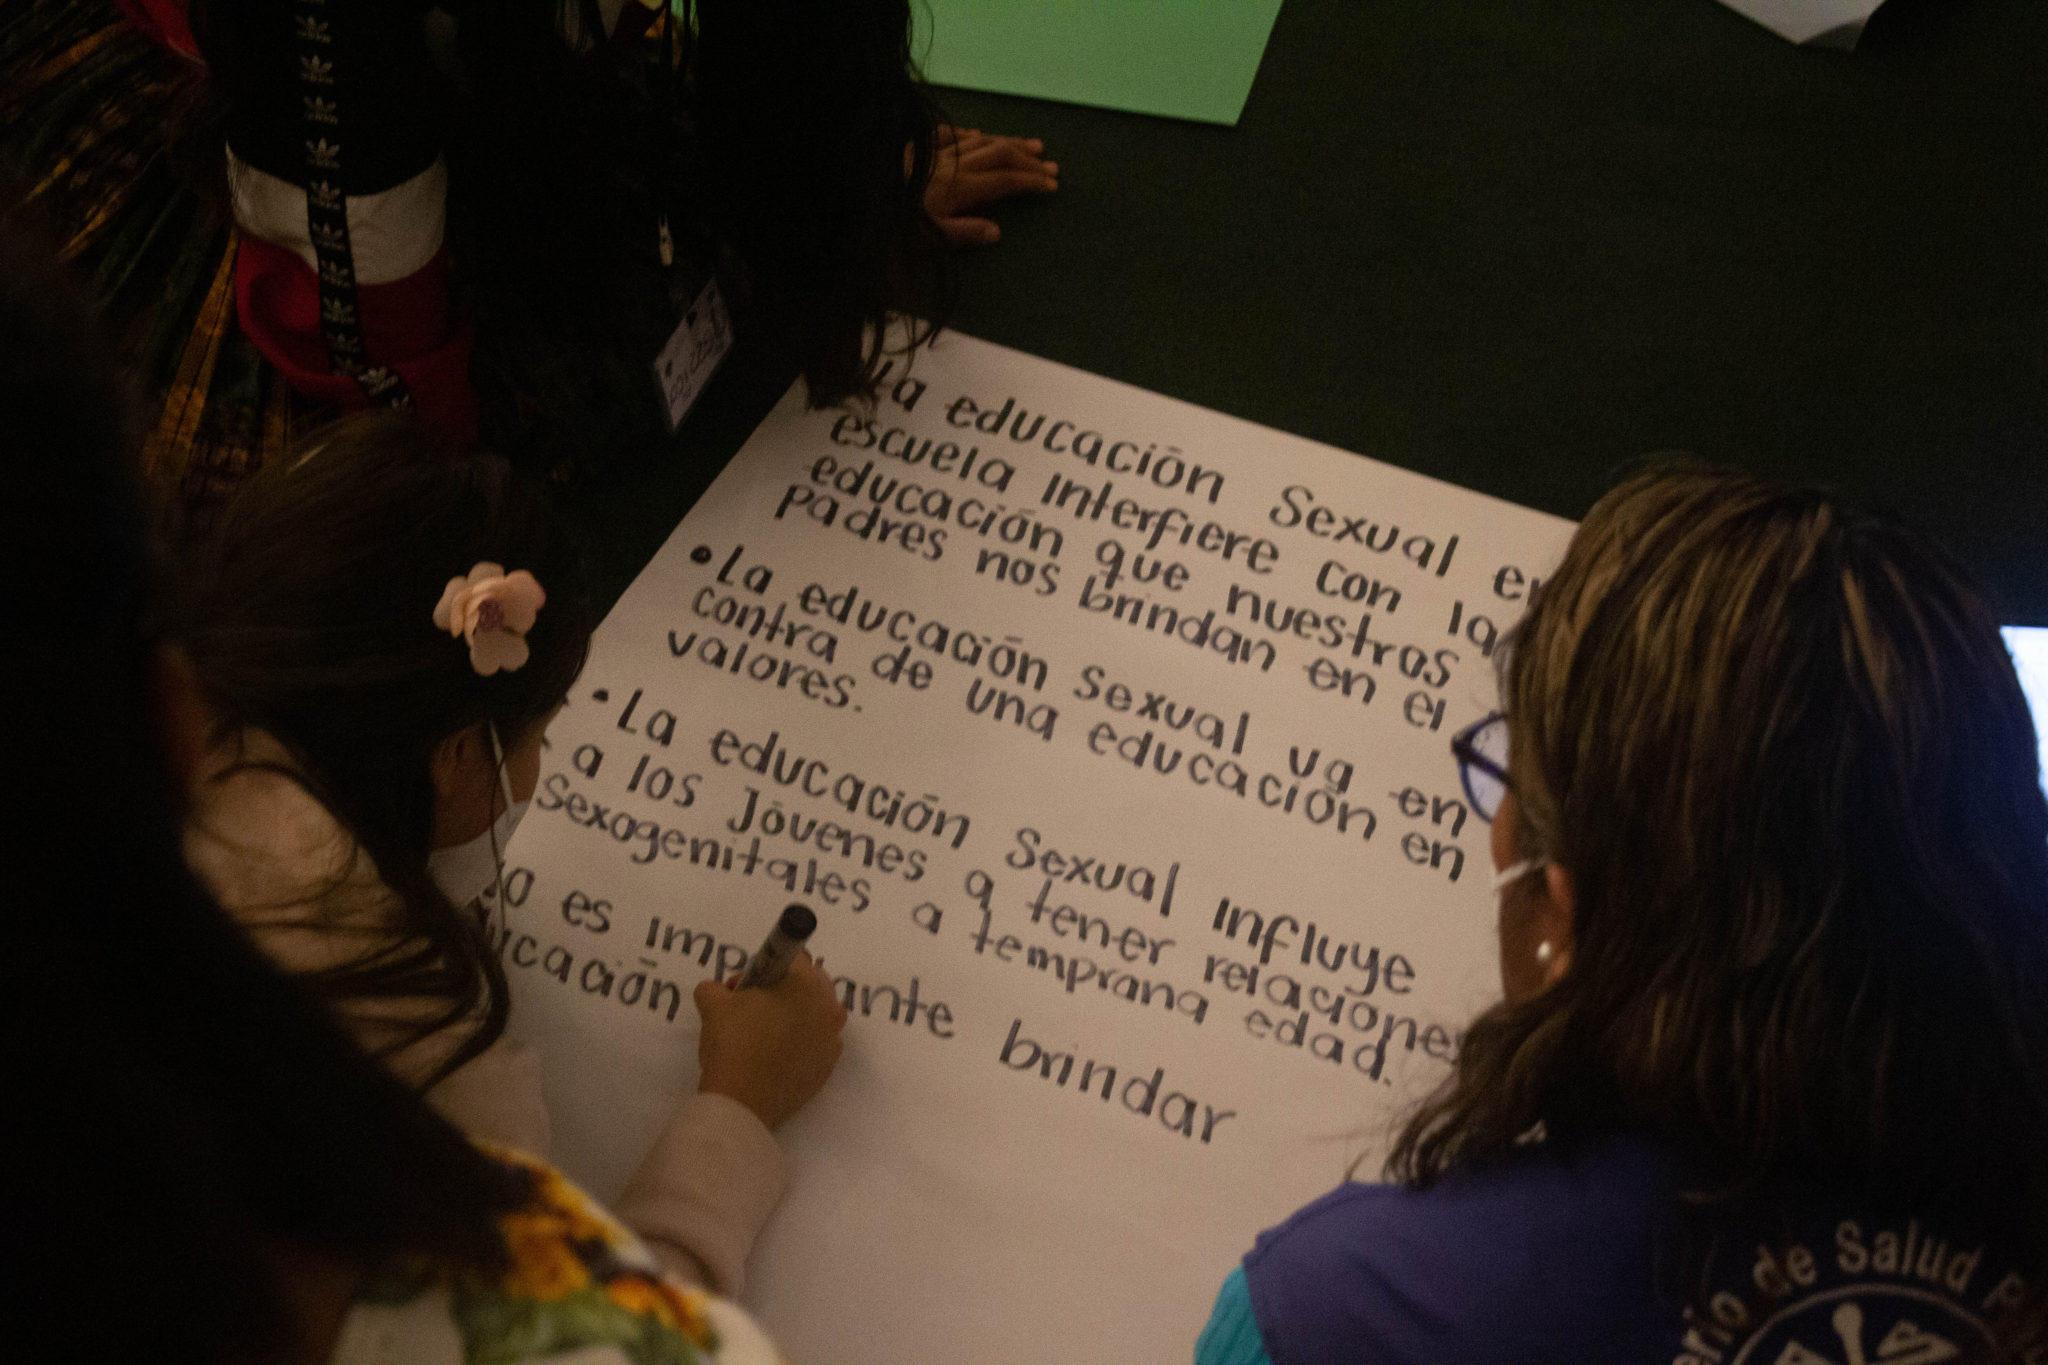 La educación Sexual en
escuela interfiere con la
educación que nuestros
padres nos brindan en el
• La educación sexual va en
contra de una educación en
valores.
• La educación sexual influye
a los jóvenes a tener relaciones
sexogenitales a temprana edad.
es importante brindar
ucación
de Salud